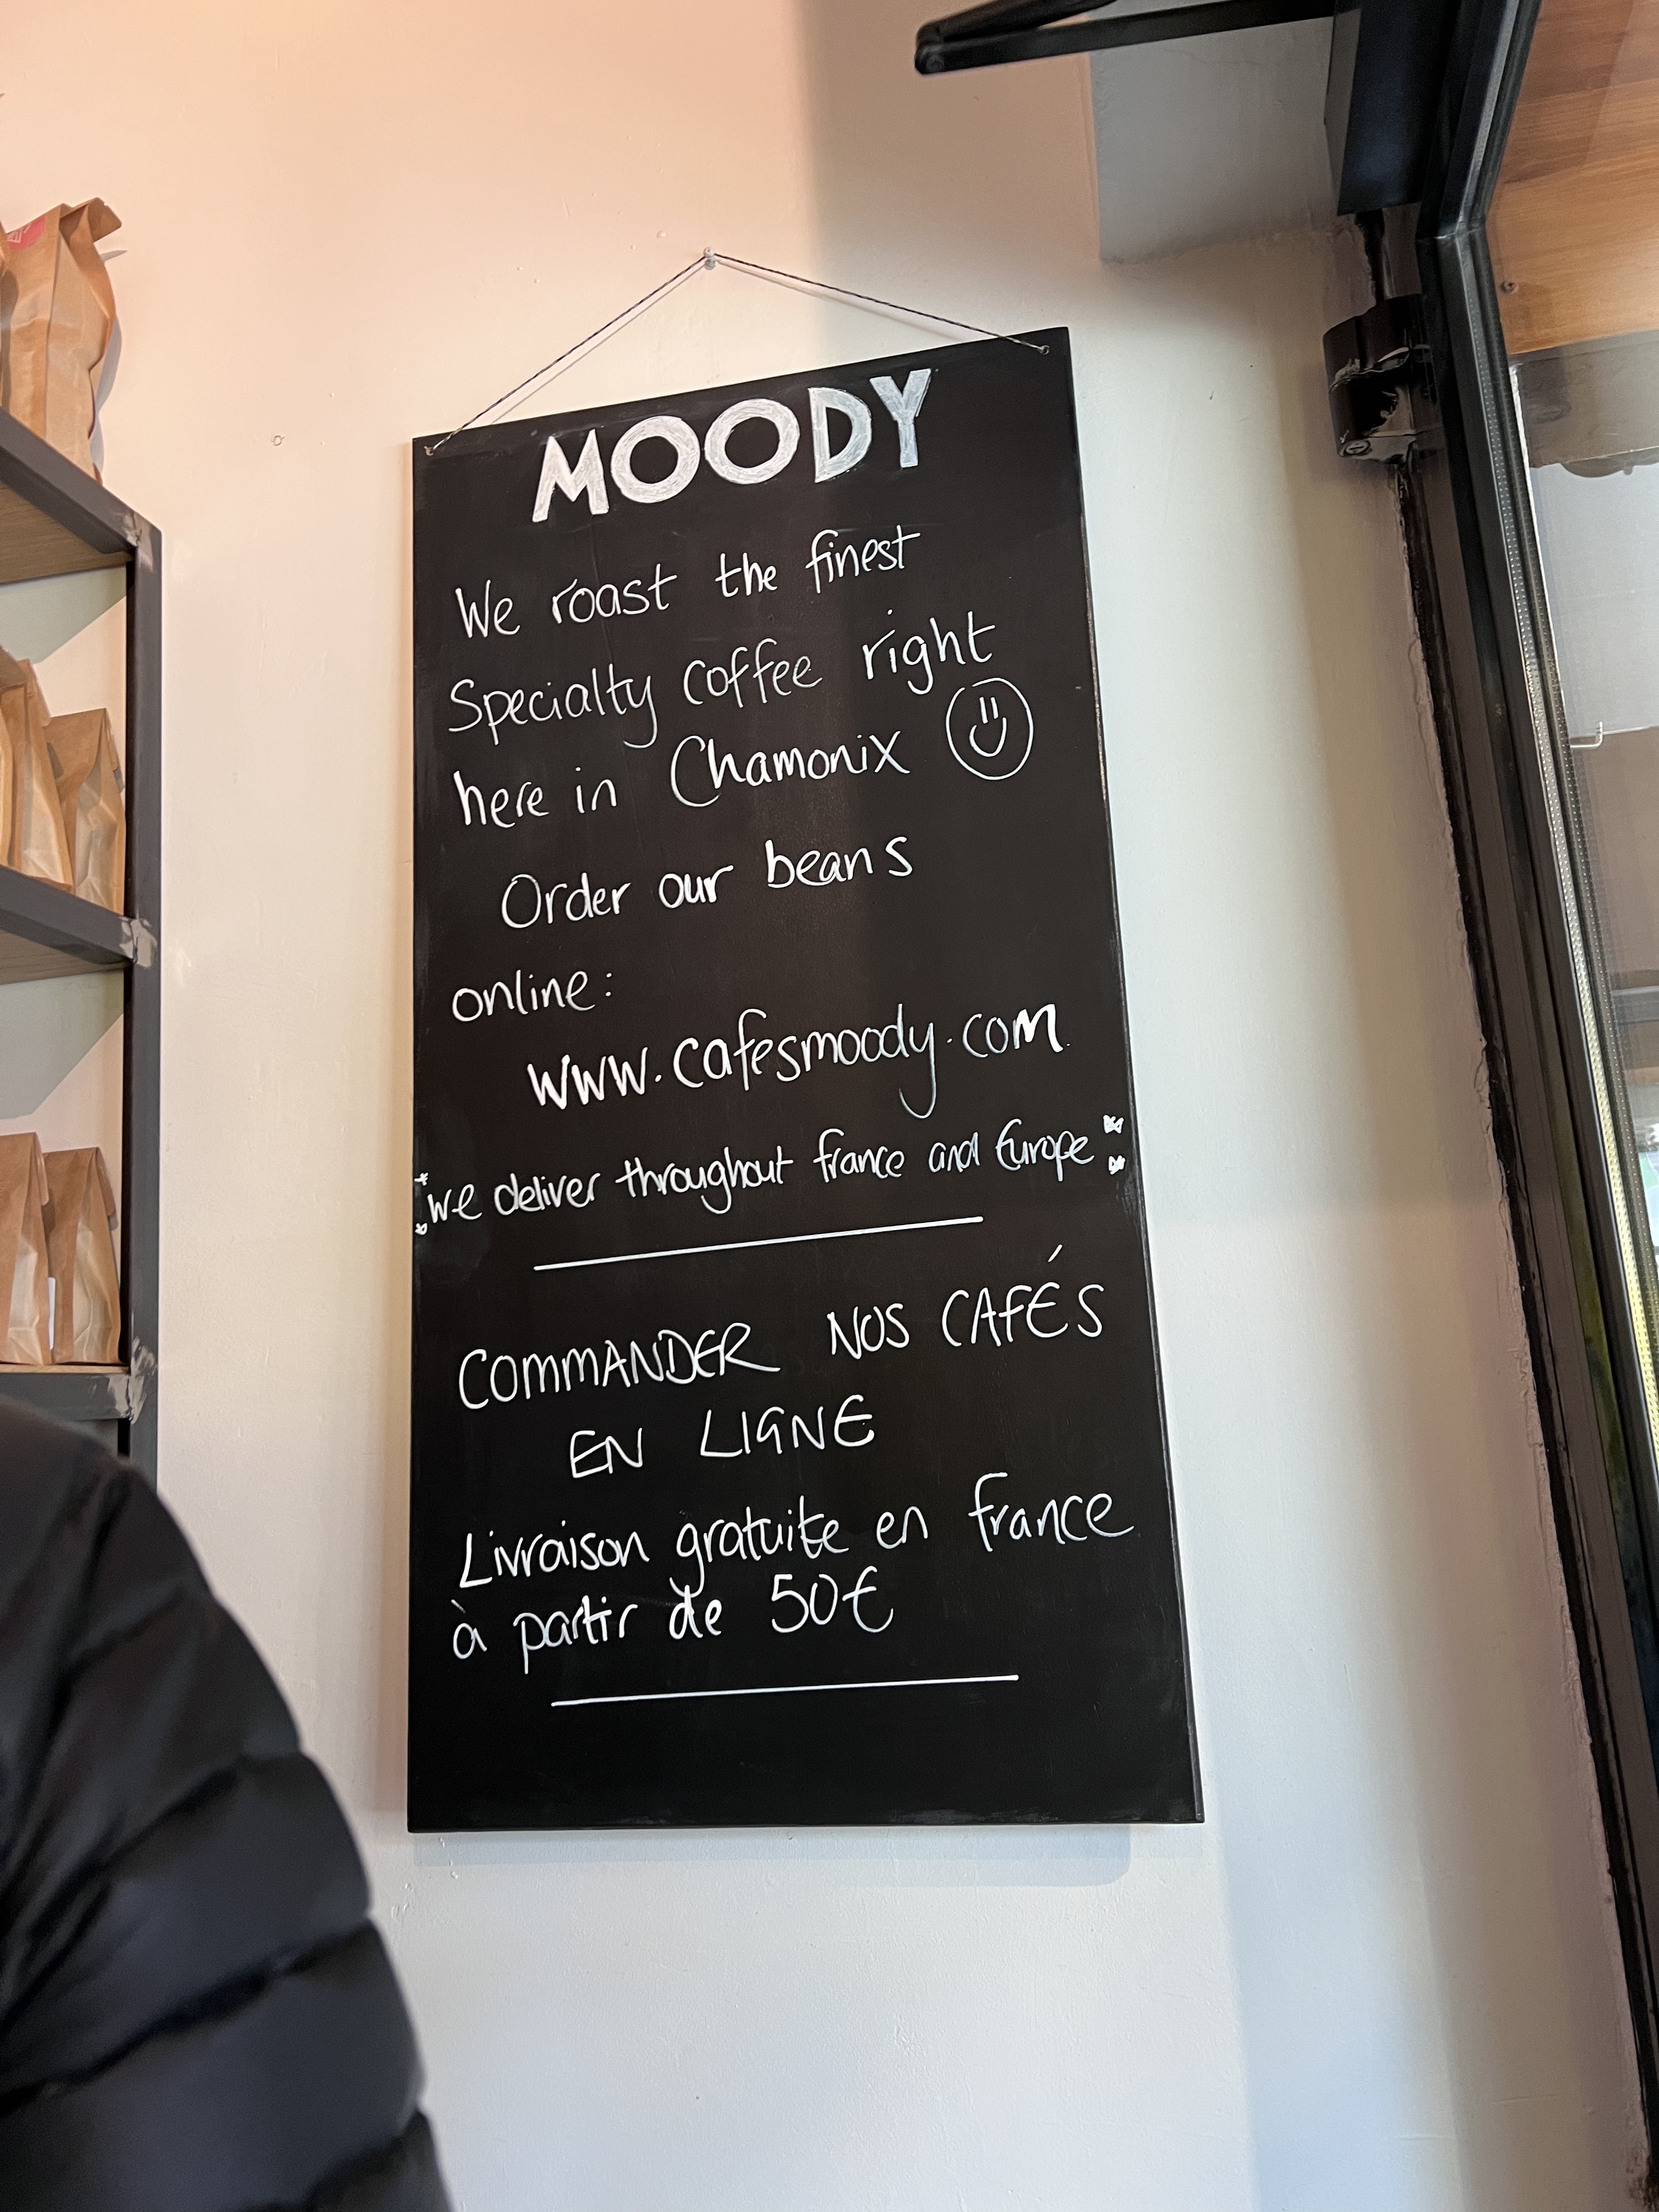 MOODY
We roast the finest
Specialty coffee right
here in Chamonix
Order our beans
online:
www.cafesmoody.com
we deliver throughout france and Europe
COMMANDER NOS CAFÉS
EN LIGNE
Livraison gratuite en france
à partir de 50€